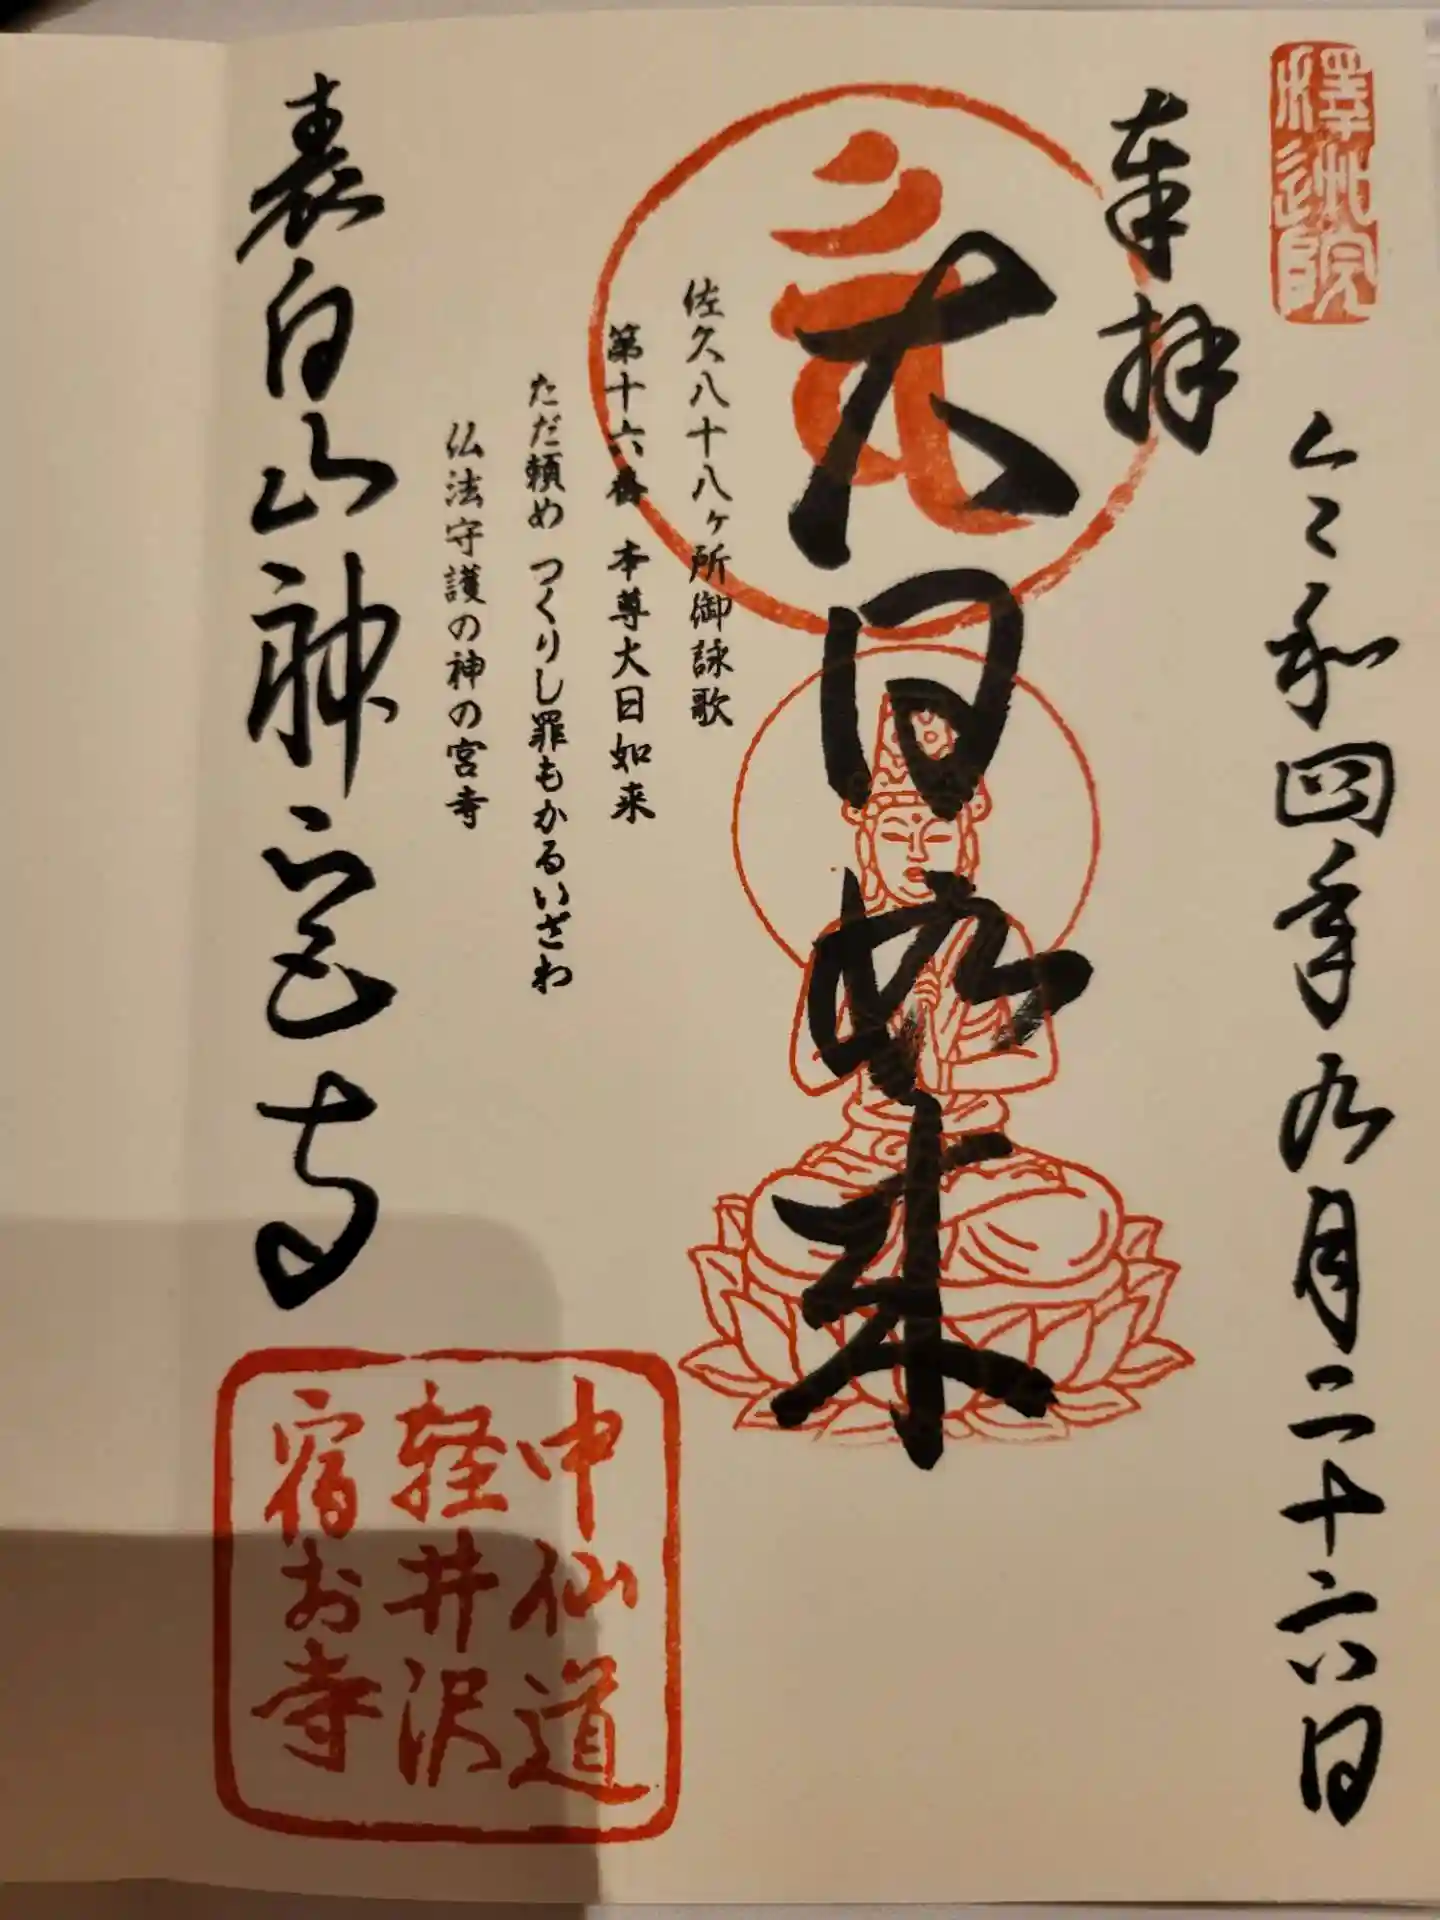 釋迦院
奉拝
令和四年九月二十六日
大日如来
佐久八十八ヶ所御詠歌
第十六番 本尊大日如来
ただ頼め つくりし罪もかるいざわ
仏法守護の神の宮寺
表白山神宮寺
中仙道
軽井沢
宿お寺